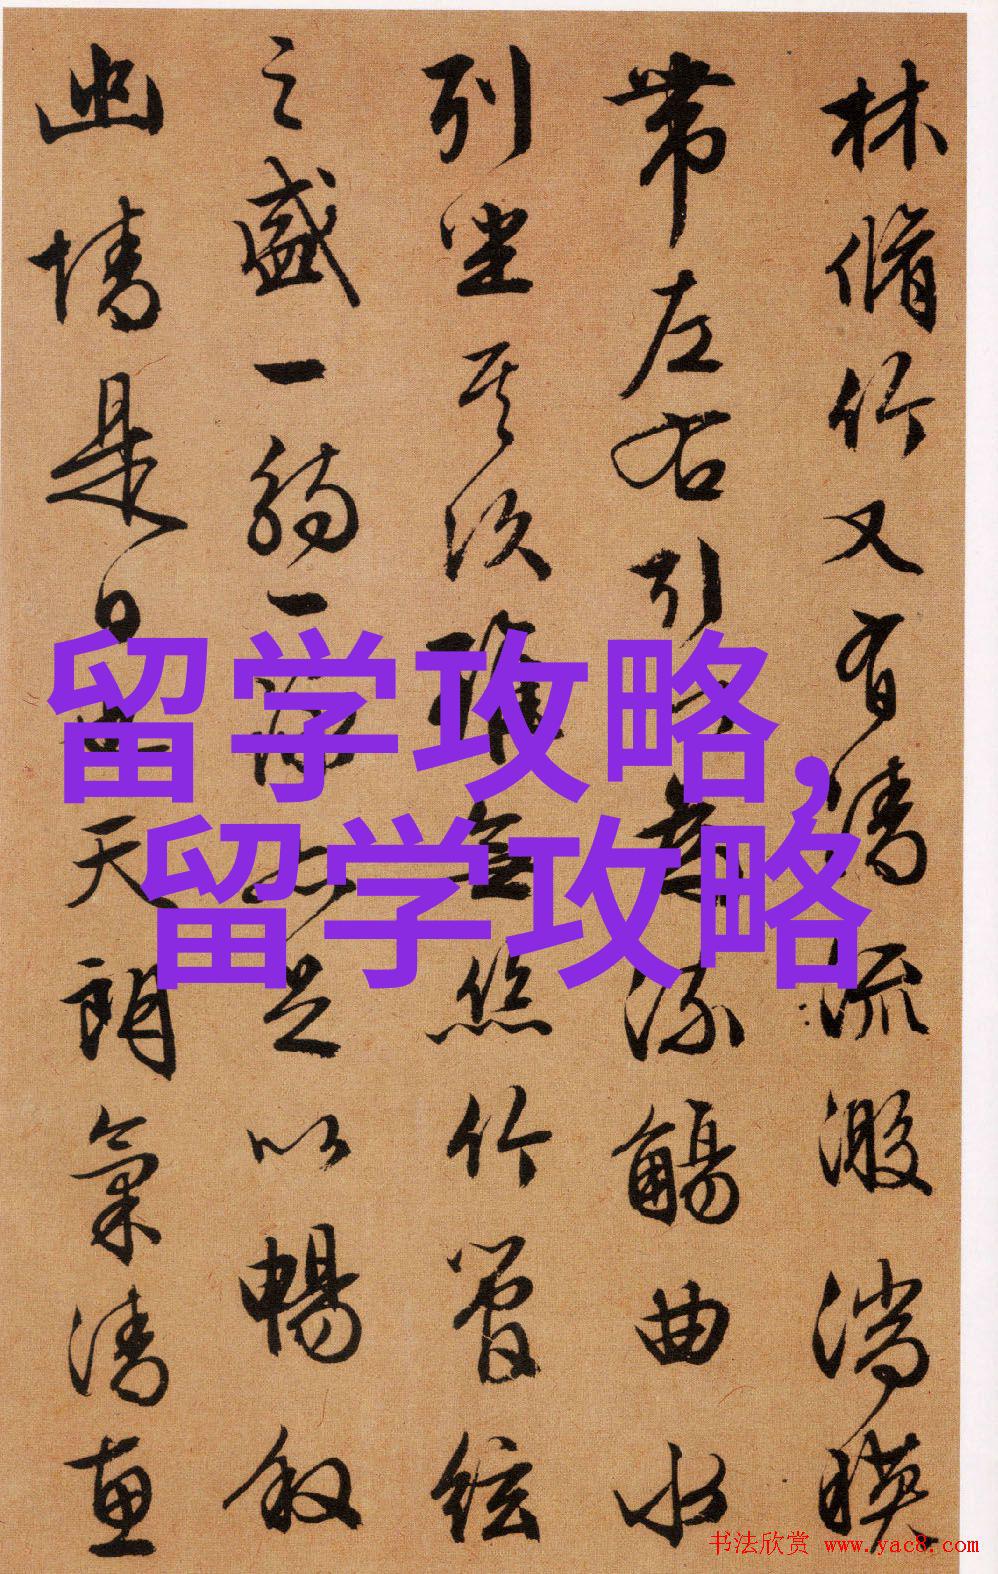 林脩竹又有清流激湍暎
帶左右引以為流觴曲水
列坐其次雖無絲竹管絃
之盛一觴一詠亦足以暢叙
幽情是日也天朗氣清惠
留学攻略,
留学攻略
书法欣赏 www.yac8.com